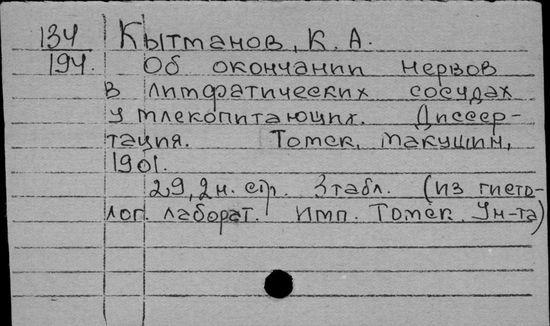 134 Кытманов, К. А.
194. Об окончании нервов
в лимфатических сосудах
у млекопитающих. Диссер-
тация. Томск, Макушин,
1901.
29, 2н. стр. 3 табл. (из гисто-
лог. лаборат. Имп. Томск. Ун-та)